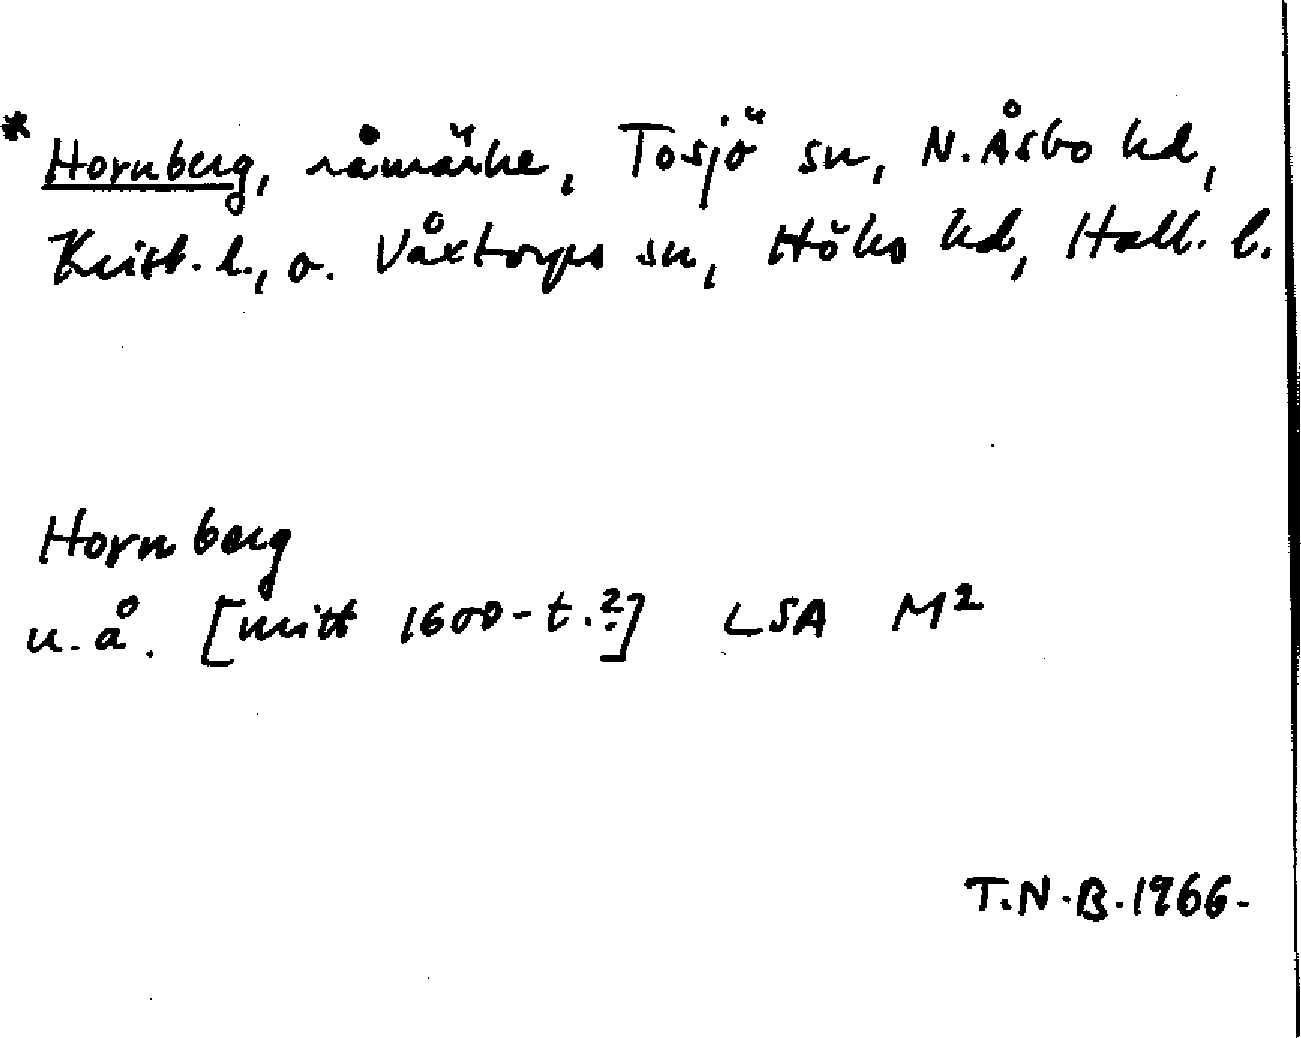 *Hornberg, råmärke, Tosjö sn, N. Åsbo hd,
Krist. l., o. Våxtorps sn, Höks hd, Hall. l.
Hornberg
u. å. [mitt 1600-t.?] LSA M²
T.N.B. 1966.